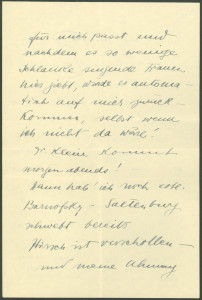 für mich passt und
nachdem es so wenige
schlanke singende Frauen
hier gibt, würde es automa-
tisch auf mich zurück-
kommen, selbst wenn
ich nicht da wäre!
Dr Klein kommt
morgen abends!
Dann hab' ich noch
Barnofsky - Saltenburg
schwebt bereits
Hirsch ist verschollen -
und meine Ahnung